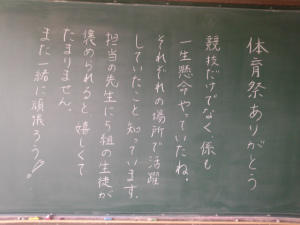 体育祭ありがとう
競技だけでなく、係も
一生懸命やっていたね。
それぞれの場所で活躍
していたこと知っています。
担当の先生にら組の生徒が
褒められると嬉しくて
たまりません。
また一緒に頑張ろう!